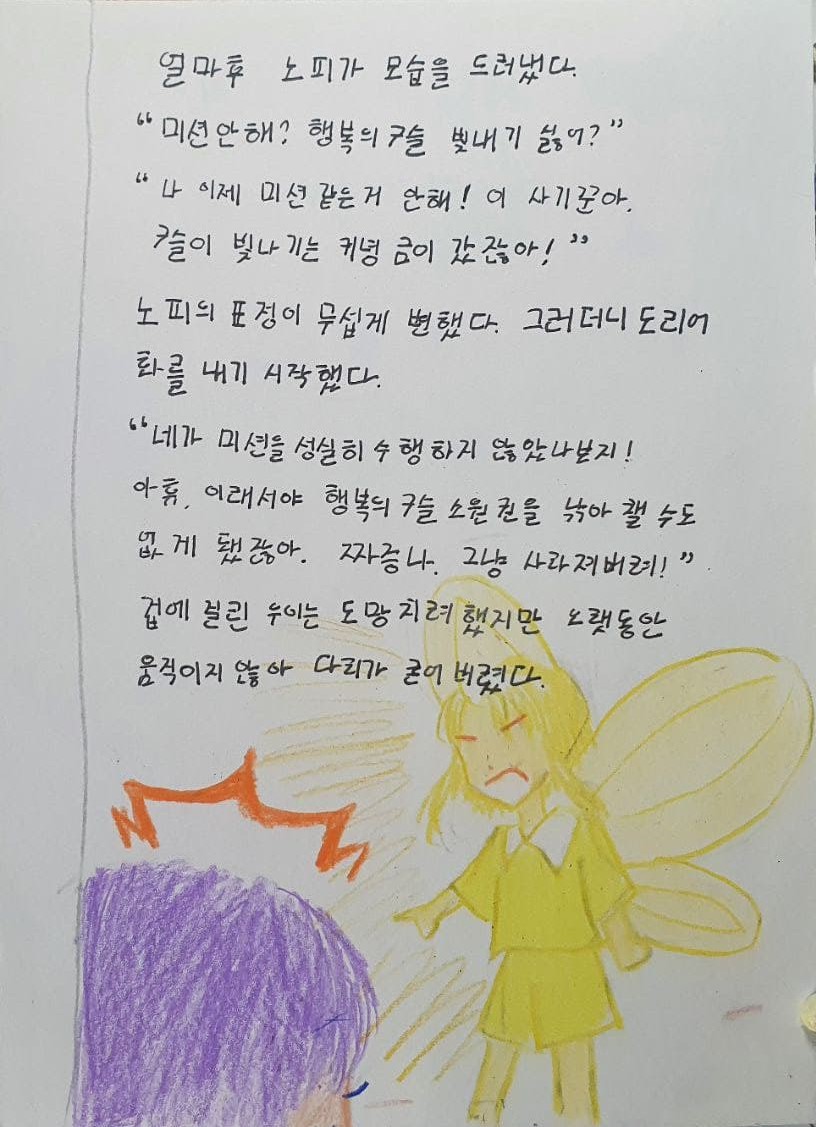 얼마후 노피가 모습을 드러냈다.
“미션안해? 행복의 구슬 빛내기 싫어?”
“나 이제 미션 같은거 안해! 이 사기꾼아.
구슬이 빛나기는 커녕 금이 갔잖아!”
노피의 표정이 무섭게 변했다. 그러더니 도리어
화를 내기 시작했다.
“네가 미션을 성실히 수행하지 않았나보지!
아휴, 이래서야 행복의 구슬 소원권을 낚아 챌 수도
없게 됐잖아. 짜증나. 그냥 사라져버려!”
겁에 질린 우이는 도망치려했지만 오랫동안
움직이지 않아 다리가 굳어 버렸다.